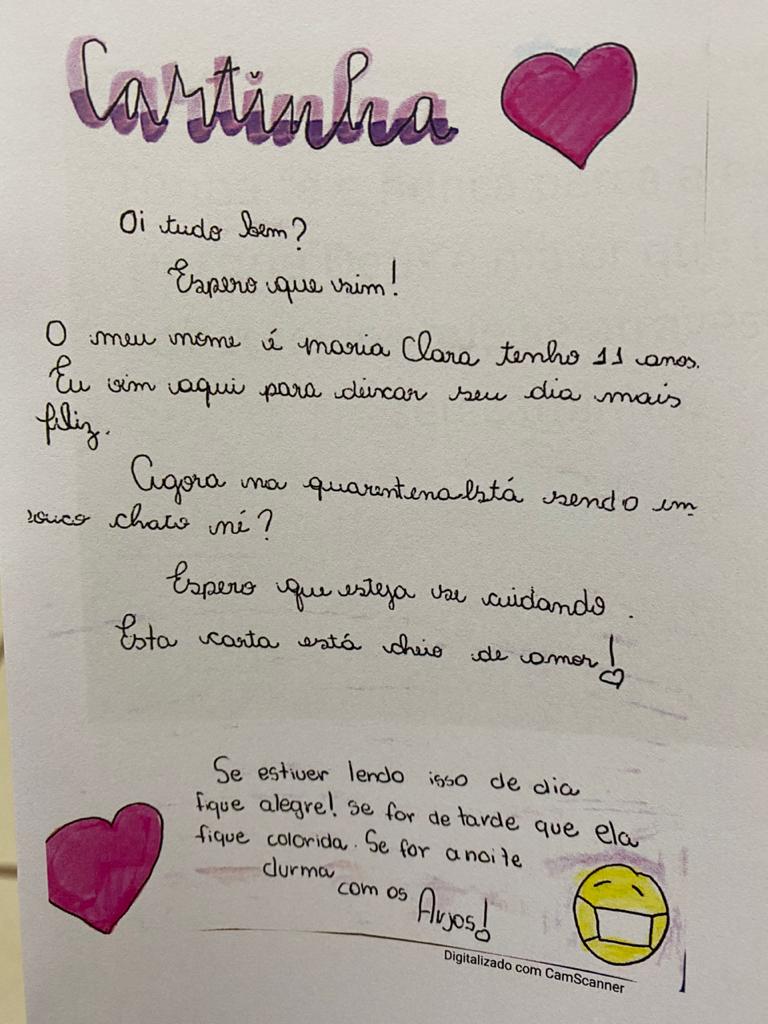 Cartinha
Oi tudo bem?
Espero que sim!
O meu nome é maria Clara tenho 11 anos.
Eu vim aqui para deixar seu dia mais
feliz.
Agora na quarentena está sendo um
pouco chato né?
Espero que esteja se cuidando.
Esta carta está cheio de amor!
Se estiver lendo isso de dia
fique alegre! se for de tarde que ela
fique colorida. Se for a noite
durma
com os
Anjos!
Digitalizado com CamScanner